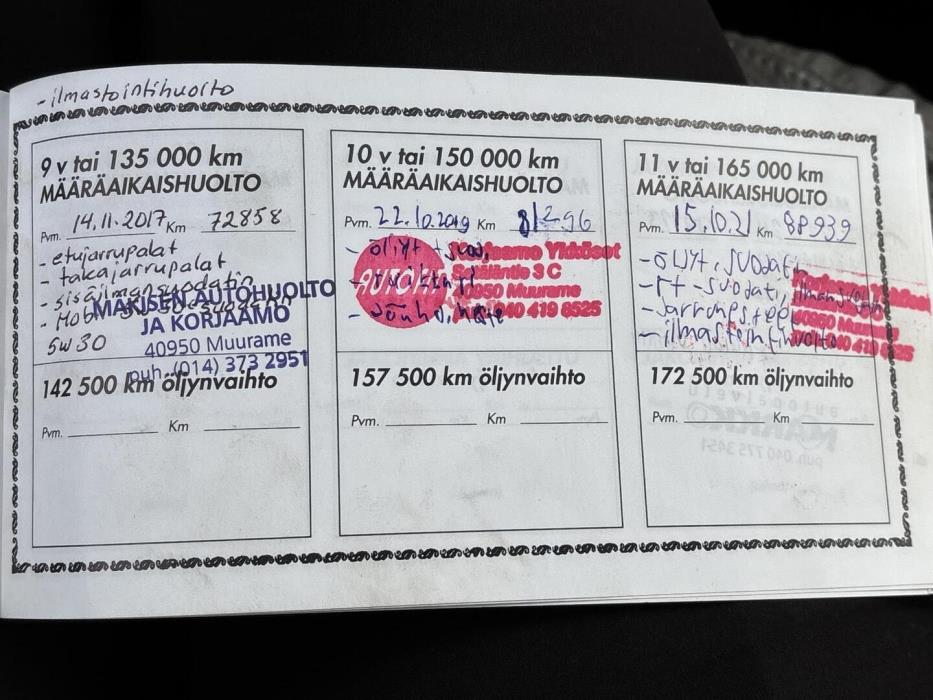 - ilmastointihuolto
9 v tai 135 000 km
MÄÄRÄAIKAISHUOLTO
Pvm. 14.11.2017 Km 72858
- etujarrupalat
- takajarrupalat
- sisäilmansuodatin
- Mobil
5W30
MÄKISEN AUTOHUOLTO
JA KORJAAMO
40950 Muurame
puh. (014) 373 2951
142 500 km öljynvaihto
Pvm. Km
10 v tai 150 000 km
MÄÄRÄAIKAISHUOLTO
Pvm. 22.10.2019 Km 81296
- öljyt + suod.
Ykköset
Setäläntie 3 C
40950 Muurame
040 419 8525
157 500 km öljynvaihto
Pvm. Km
11 v tai 165 000 km
MÄÄRÄAIKAISHUOLTO
Pvm. 15.10.21 Km 88939
- öljyt, suodatin
- rt-suodat, ilmansuodatin
- ilmastointihuolto
40950 Muurame
172 500 km öljynvaihto
Pvm. Km